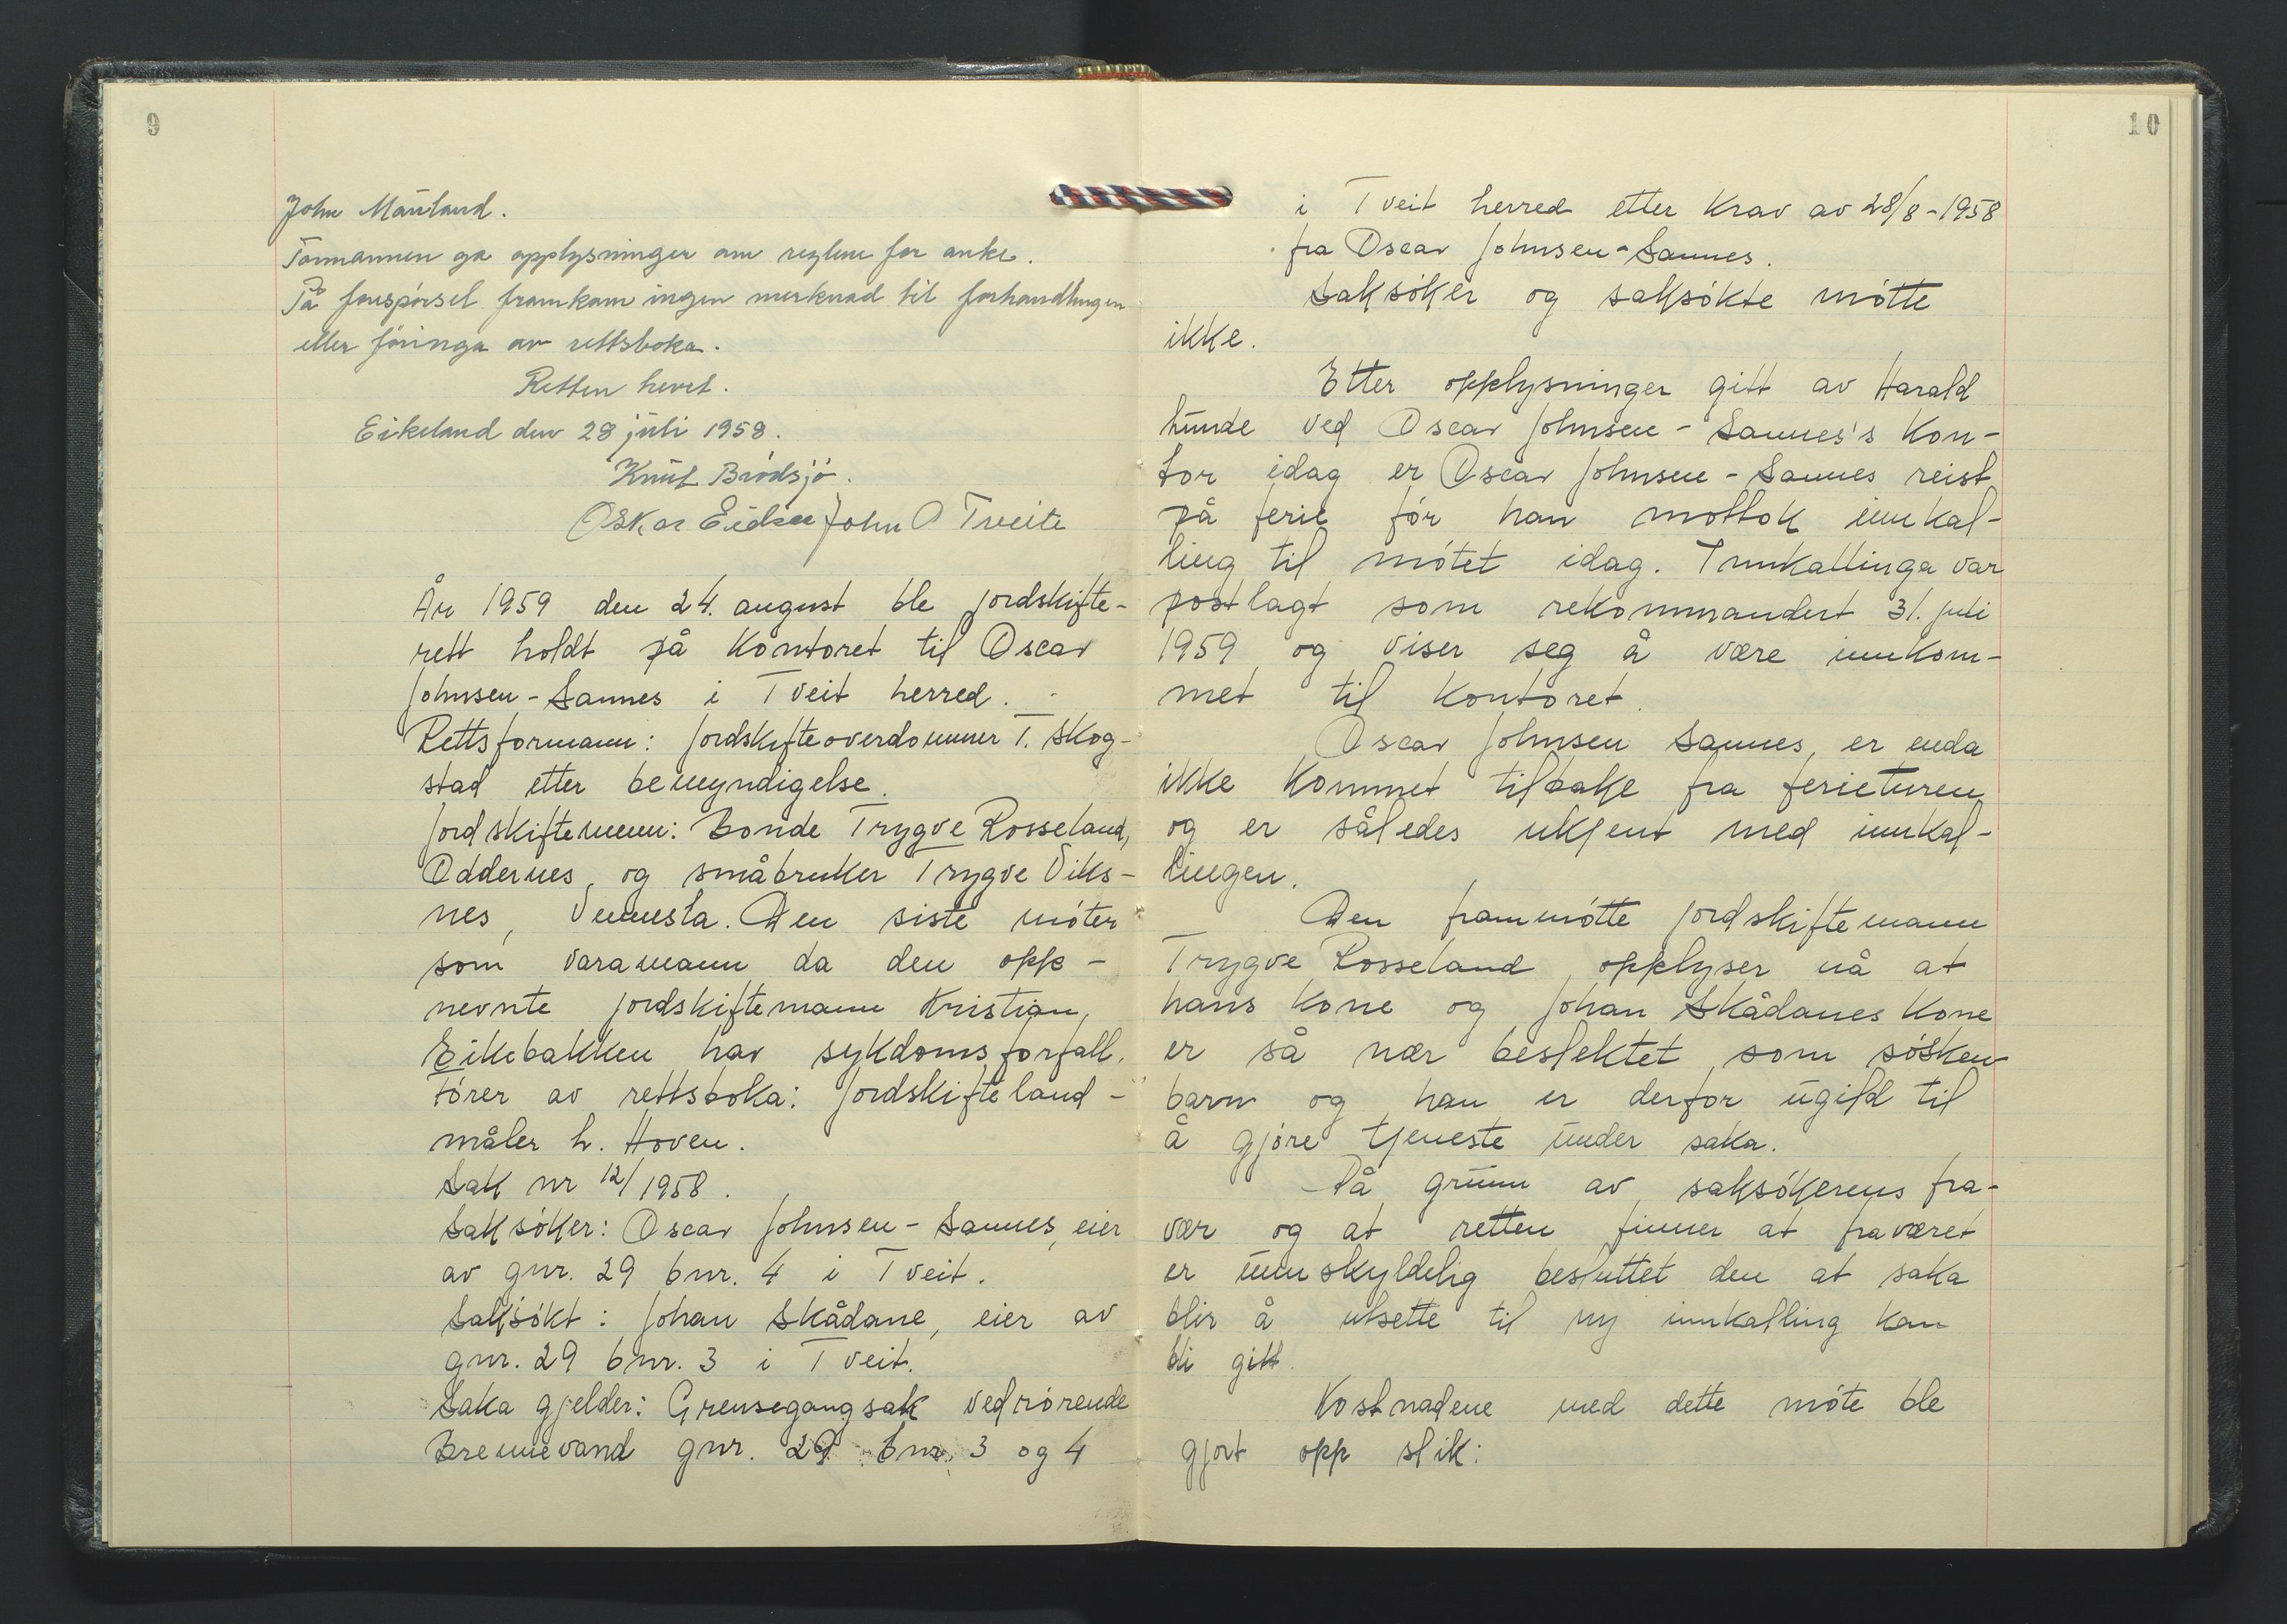 9
John Mauland.
Formannen ga opplysninger om reglene for anke.
På forespørsel framkom ingen merknad til forhandlingen
eller føringa av rettsboka.
Retten hevet.
Eikeland den 28 juli 1958.
Knut Brødsjø.
Oskar Eidsaa John O Tveite
År 1959 den 24. august ble jordskifte-
rett holdt på kontoret til Oscar
Johnsen-Sannes i Tveit herred.
Rettsformann: Jordskifteoverdommer T. Skog-
stad etter bemyndigelse.
Jordskiftemenn: Bonde Trygve Rosseland,
Oddernes, og småbruker Trygve Viks-
nes, Vennesla. Den siste møter
som varamann da den opp-
nevnte jordskiftemann Kristian
Eikebakken har sykdomsforfall.
Fører av rettsboka: Jordskifteland-
måler h. Hoven.
Sak nr 12/1958.
Saksøker: Oscar Johnsen-Sannes, eier
av gnr. 29 bnr. 4 i Tveit.
Saksøkt: Johan Skådane, eier av
gnr. 29 bnr. 3 i Tveit.
Saka gjelder: Grensegangsak vedrørende
Brennevand gnr. 29 bnr. 3 og 4
10
i Tveit herred etter krav av 28/8-1958
fra Oscar Johnsen-Sannes.
Saksøker og saksøkte møtte
ikke.
Etter opplysninger gitt av Harald
Lunde ved Oscar Johnsen-Sannes's kon-
tor idag er Oscar Johnsen-Sannes reist
på ferie før han mottok innkal-
ling til møtet idag. Innkallinga var
postlagt som rekommandert 31. juli
1959 og viser seg å være innkom-
met til kontoret.
Oscar Johnsen Sannes, er enda
ikke kommet tilbake fra ferieturen
og er således ukjent med innkal-
lingen.
Den frammøtte jordskiftemann
Trygve Rosseland, opplyser nå at
hans kone og Johan Skådanes kone
er så nær beslektet som søsken-
barn og han er derfor ugild til
å gjøre tjeneste under saka.
På grunn av saksøkerens fra-
vær og at retten finner at fraværet
er unnskyldelig besluttet den at saka
blir å utsette til ny innkalling kan
bli gitt.
Kostnadene med dette møte ble
gjort opp slik: